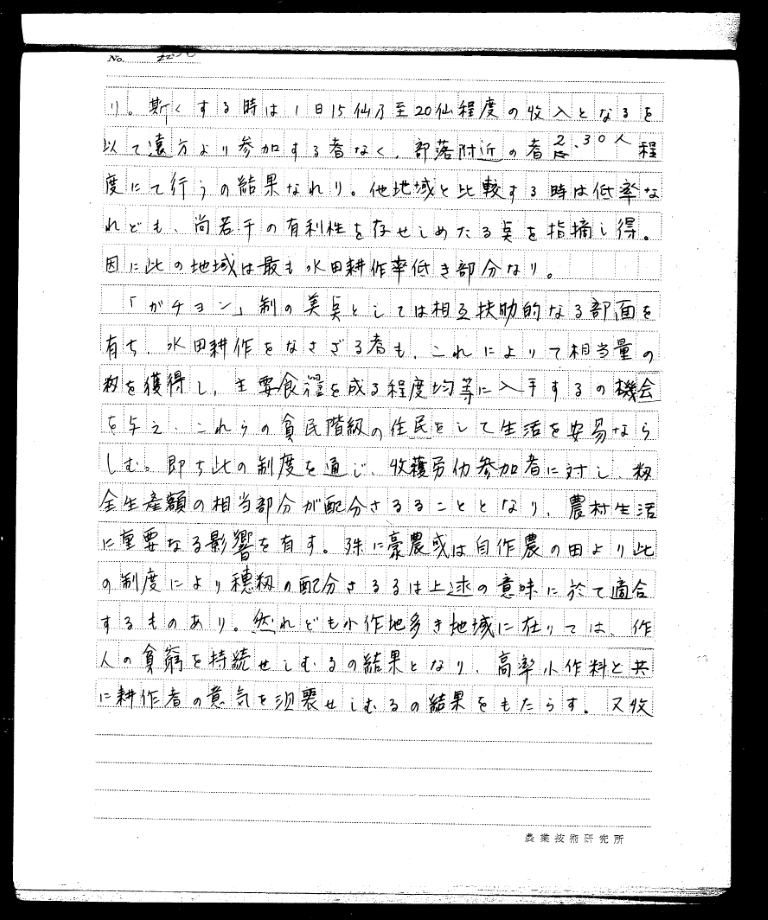 No.
り。斯くする時は1日15仙乃至20仙程度の収入となるを
以て遠方より参加する者なく、部落附近の者2、30人程
度にて行うの結果なれり。他地域と比較する時は低率な
れども、尚若干の有利性を存せしめたる点を指摘し得。
因に此の地域は最も水田耕作率低き部分なり。
「ガチョン」制の美点としては相互扶助的なる部面を
有ち、水田耕作をなさざる者も、これによって相当量の
籾を獲得し、主要食糧を成る程度均等に入手するの機会
を与え、これらの貧民階級の住民をして生活を安易なら
しむ。即ち此の制度を通じ、収穫労働参加者に対し、籾
全生産額の相当部分が配分さるることとなり、農村生活
に重要なる影響を有す。殊に豪農或は自作農の田より此
の制度により穂籾の配分さるるは上述の意味に於て適合
するものあり。然れども小作地多き地域に在りては、作
人の貧窮を持続せしむるの結果となり、高率小作料と共
に耕作者の意気を沮喪せしむるの結果をもたらす。又収
農業技術研究所